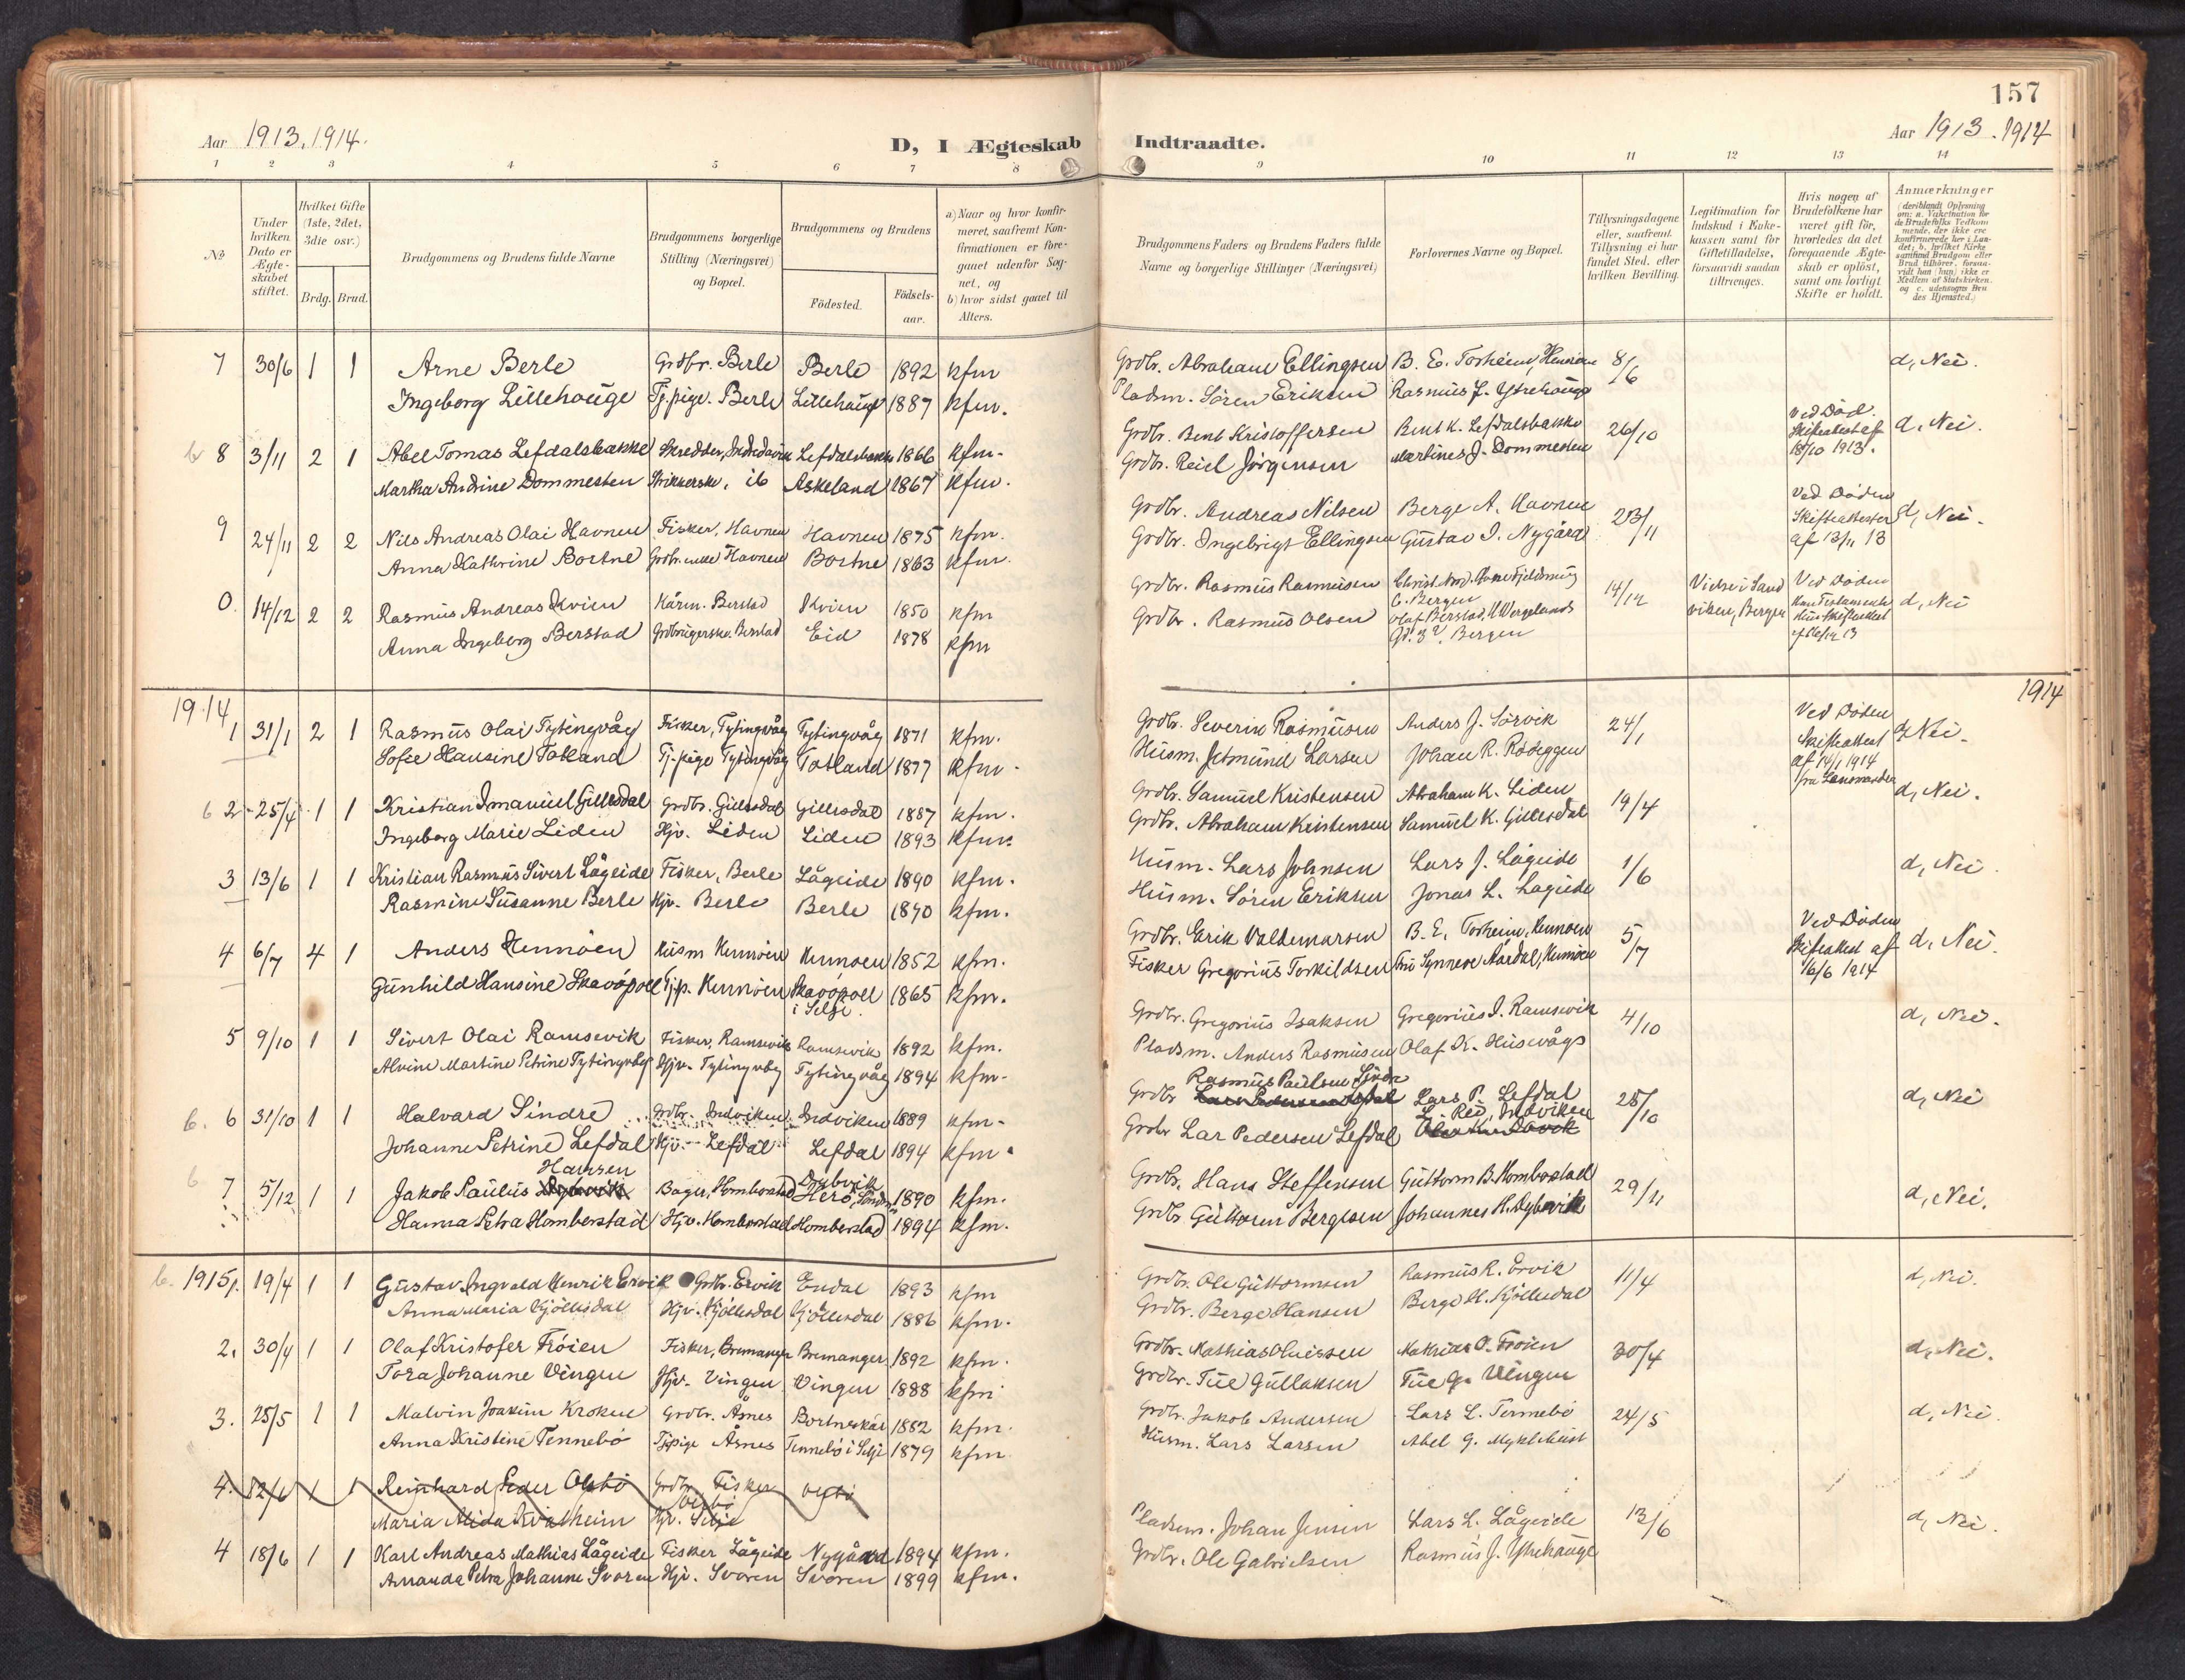 157
Aar 1913. 1914.
D, I Ægteskab Indtraadte.
Aar 1913. 1914
1 2 3 4 5 6 7 8 9 10 11 12 13 14
No
Under hvilken Dato er Ægteskabet stiftet.
Hvilket Gifte (1ste, 2det, 3die osv.)
Brdg. Brud.
Brudgommens og Brudens fulde Navne
Brudgommens borgerlige Stilling (Næringsvei) og Bopæl.
Brudgommens og Brudens
Födested.
Födselsaar.
a) Naar og hvor konfirmeret, saafremt Konfirmationen er foregaaet udenfor Sognet, og
b) hvor sidst gaaet til Alters.
Brudgommens Faders og Brudens Faders fulde Navne og borgerlige Stillinger (Næringsvei)
Forlovernes Navne og Bopæl.
Tillysningsdagene eller, saafremt Tillysning ei har fundet Sted, efter hvilken Bevilling.
Legitimation for Indskud i Enkekassen samt for Giftetilladelse, forsaavidt saadan tiltrænges.
Hvis nogen af Brudefolkene har været gift för, hvorledes da det foregaaende Ægteskab er oplöst, samt om lovligt Skifte er holdt.
Anmærkninger (deriblandt Oplysning om: a. Vakcination for de Brudefolks Vedkommende, der ikke ere konfirmerede her i Landet; b. hvilket Kirkesamfund Brudgom eller Brud tilhörer, forsaavidt han (hun) ikke er Medlem af Statskirken, og c. udensogns Brudes Hjemsted.)
7 30/6 1 1 Arne Berle Grdbr. Berle Berle 1892 kfm Grdbr. Abraham Ellingsen B. E. Torheim, 8/6 d, Nei.
Ingeborg Lillehauge Tj.pige. Berle Lillehauge 1887 kfm. Pladsm. Sören Eriksen Rasmus J. Ytrehauge
8 3/11 2 1 Abel Tomas Lefdalsbakke Skredder, Lefdalsbakke 1866 kfm. Grdbr. Bent Kristoffersen Bent K. Lefdalsbakke 26/10 Ved Död. Skifteattest af 18/10 1913. d, Nei.
Martha Andrine Dommesten Strikkerske, ib Askeland 1867 kfm. Grdbr. Reiel Jörgensen Martines J. Dommesten
9 24/11 2 2 Nils Andreas Olai Havnen Fisker, Havnen Havnen 1875 kfm. Grdbr. Andreas Nilsen Berge A. Havnen 23/11 Ved Döden Skifteattester af 13/11 13 d, Nei.
Anna Kathrine Bortne Grdbr.enke Havnen Bortne 1863 kfm. Grdbr. Ingebrigt Ellingsen Gustav I. Nygård
0. 14/12 2 2 Rasmus Andreas Kvien Kårm. Berstad Kvien 1850 kfm Grdbr. Rasmus Rasmussen 14/12 Vielse i Sandviken, Bergen Ved Döden d, Nei
Anna Ingeborg Berstad Grdbrugerske. Berstad Eid 1878 kfm Grdbr. Rasmus Olsen Olaf Berstad, Bergen
1914
1914
1 31/1 2 1 Rasmus Olai Tytingvåg Fisker, Tytingvåg Tytingvåg 1871 kfm. Grdbr. Severin Rasmusen Anders J. Sörvik 24/1 Ved Döden Skifteattest af 14/1 1914 fra Lensmanden d, Nei.
Sofie Hansine Totland Tj.pige Tytingvåg Totland 1877 kfm. Husm. Jetmund Larsen Johan R. Rödeggen
2 25/4 1 1 Kristian Imanuel Gillesdal Grdbr. Gillesdal Gillesdal 1887 kfm. Grdbr. Samuel Kristensen Abraham K. Liden 19/4 d, Nei.
Ingeborg Marie Liden Hjv. Liden Liden 1893 kfm. Grdbr. Abraham Kristensen Samuel K. Gillesdal
3 13/6 1 1 Kristian Rasmus Sivert Lågeide Fisker, Berle Lågeide 1890 kfm. Husm. Lars Johnsen Lars J. Lågeide 1/6 d, Nei
Rasmine Susanne Berle Hjv. Berle Berle 1890 kfm. Husm. Sören Eriksen Jonas L. Lageide
4 6/7 4 1 Anders Hennöen Husm Hennöen Hennöen 1852 kfm. Grdbr. Erik Valdemarsen B. E. Torheim, Hennöen 5/7 Ved Döden Skifteattest af 16/6 1914 d, Nei.
Gunhild Hansine Skavöpoll Tj.p. Hennöen Skavöpoll i Selje. 1865 kfm. Fisker Gregorius Torkildsen Fru Synneve Aardal, Hennöen
5 9/10 1 1 Sivert Olai Ramsevik Fisker, Ramsevik Ramsevik 1892 kfm. Grdbr. Gregorius Isaksen Gregorius I. Ramsevik 4/10 d, Nei.
Alvine Martine Petrine Tytingvåg Hjv. Tytingvåg Tytingvåg 1894 kfm. Pladsm. Anders Rasmusen Olaf K. Husevågs
6. 6 31/10 1 1 Halvard Sindre Grdbr. Indviken Indviken 1889 kfm. Grdbr Rasmus Paulsen Sindre Lars P. Lefdal 25/10 d, Nei
Johanne Petrine Lefdal Hjv. Lefdal Lefdal 1894 kfm. Grdbr Lar Pedersen Lefdal L. Rei, Indviken
7 5/12 1 1 Jakob Paulus Hansen Bager, Homborstad Dybvik Herö, 1890 kfm. Grdbr. Hans Steffensen Guttorm B. Homborstad 29/11 d, Nei.
Hanna Petra Homberstad Hjv. Homborstad Homberstad 1894 kfm. Grdbr Guttorm Bergesen Johannes H. Dybevik
1915 1. 19/4 1 1 Gustav Ingvald Henrik Ervik Grdbr. Ervik Endal 1893 kfm Grdbr. Ole Guttormsen Rasmus R. Ervik 11/4 d, Nei.
Anna Maria Kjöllesdal Hjv. Kjöllesdal Kjöllesdal 1886 kfm. Grdbr. Berge Hansen Berge H. Kjöllesdal
2. 30/4 1 1 Olaf Kristofer Fröien Fisker, Bremanger Bremanger 1892 kfm. Grdbr. Mathias Oluissen Mathias O. Fröien 30/4 d, Nei.
Tora Johanne Vingen Hjv. Vingen Vingen 1888 kfm Grdbr. Tue Gullaksen Tue G. Vingen
3. 25/5 1 1 Malvin Joakim Kroken Grdbr. Åsnes Bortneskår 1882 kfm. Grdbr. Jakob Andersen Lars L. Tennebö 24/5 d, Nei.
Anna Kristine Tennebö Tjpige Åsnes Tennebö i Selje 1879 kfm Husm. Lars Larsen Abel G. Myklebust
4. 12/6 1 1 Reinhard Peder Otsbö Grdbr. Fisker
Maria Alida Kvalheim Hjv. Selje
4 18/6 1 1 Karl Andreas Mathias Lågeide Fisker Lågeide Nygård 1894 kfm. Pladsm. Johan Jensen Lars L. Lågeide 13/6 d, Nei.
Amanda Petra Johanne Svoren Hjv. Svoren Svoren 1899 kfm. Grdbr. Ole Gabrielsen Rasmus J. Ytrehauge